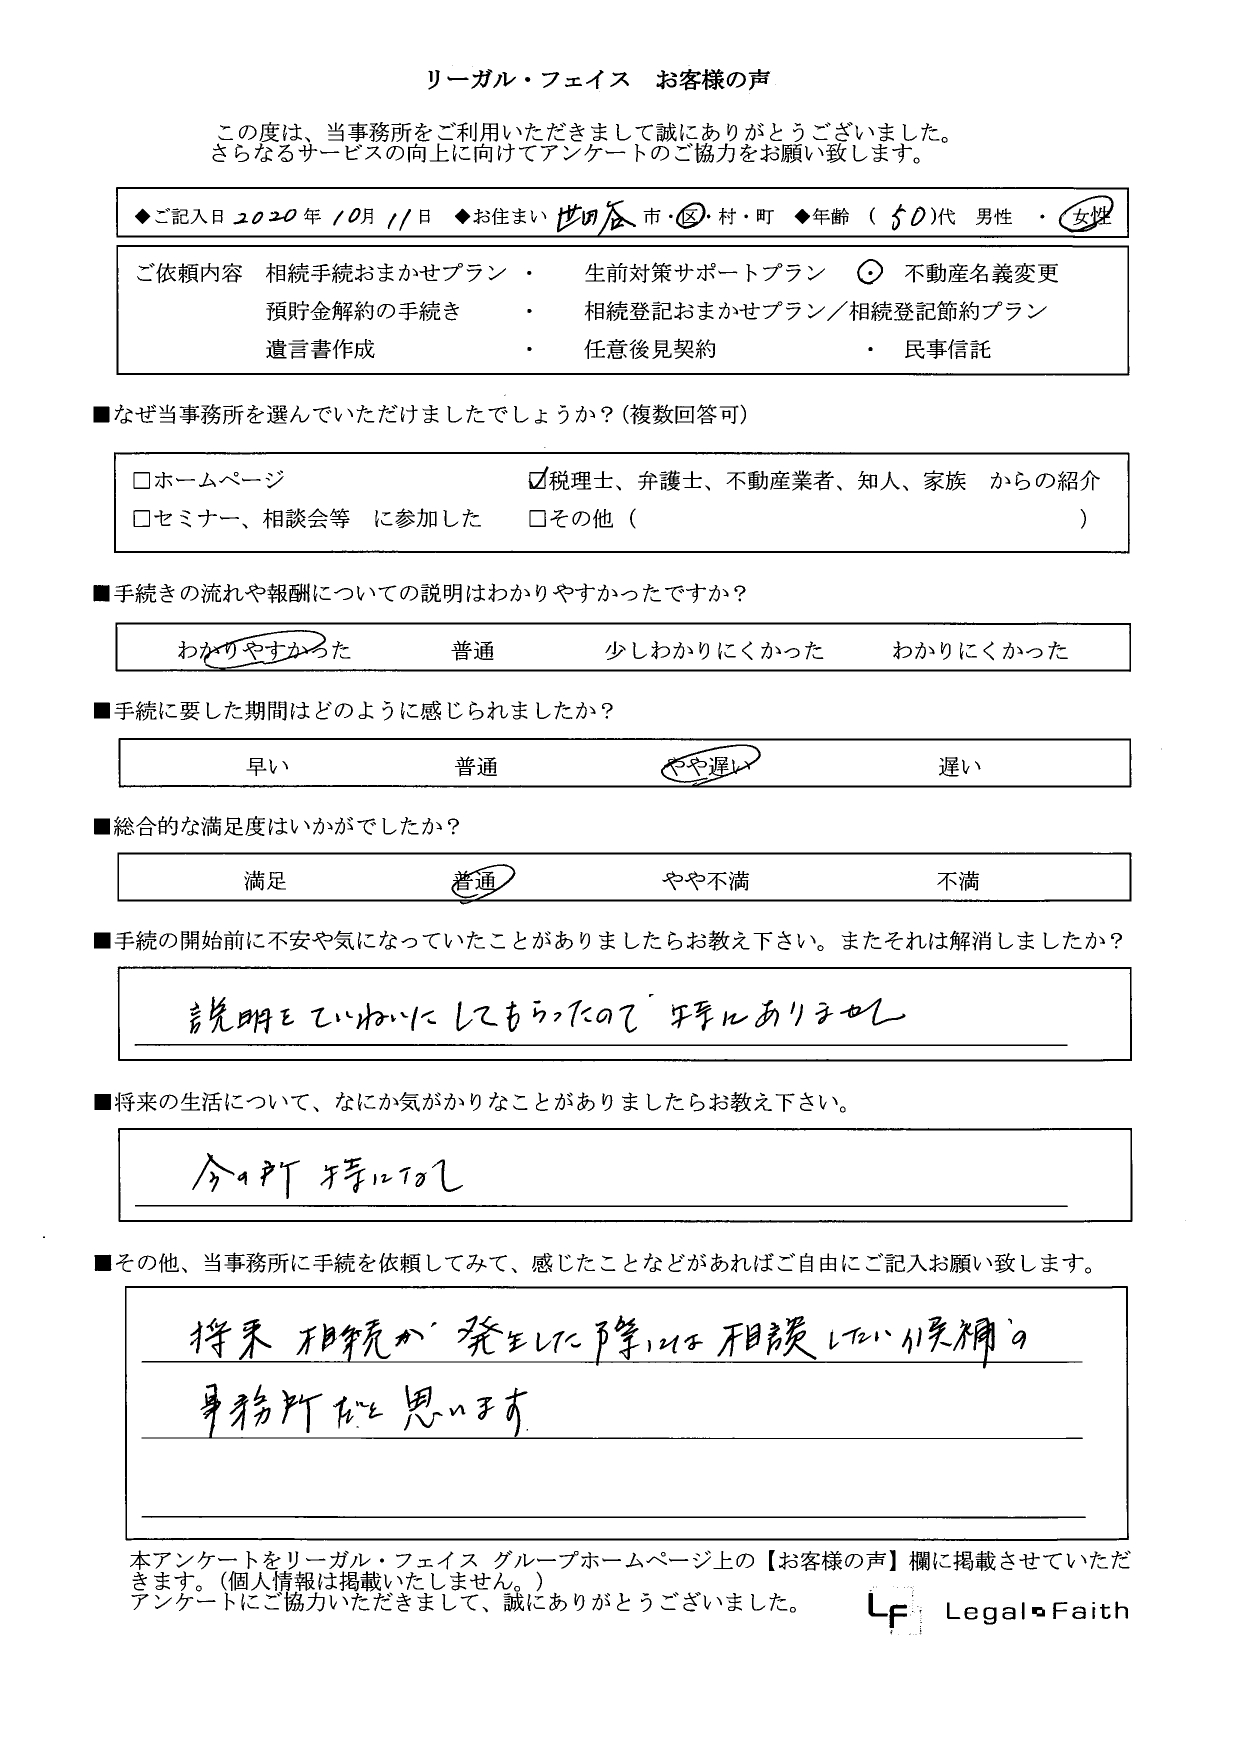 リーガル・フェイス　お客様の声
この度は、当事務所をご利用いただきまして誠にありがとうございました。
さらなるサービスの向上に向けてアンケートのご協力をお願い致します。
◆ご記入日 2020 年 10月 11日　◆お住まい 世田谷 市・区・村・町　◆年齢　( 50 )代　男性　・　女性
ご依頼内容　相続手続おまかせプラン　・　生前対策サポートプラン　・　不動産名義変更
預貯金解約の手続き　・　相続登記おまかせプラン／相続登記節約プラン
遺言書作成　・　任意後見契約　・　民事信託
■なぜ当事務所を選んでいただけましたでしょうか？(複数回答可)
□ホームページ　☑税理士、弁護士、不動産業者、知人、家族　からの紹介
□セミナー、相談会等　に参加した　□その他（　）
■手続きの流れや報酬についての説明はわかりやすかったですか？
わかりやすかった　普通　少しわかりにくかった　わかりにくかった
■手続に要した期間はどのように感じられましたか？
早い　普通　やや遅い　遅い
■総合的な満足度はいかがでしたか？
満足　普通　やや不満　不満
■手続の開始前に不安や気になっていたことがありましたらお教え下さい。またそれは解消しましたか？
説明をていねいにしてもらったので 特にありません
■将来の生活について、なにか気がかりなことがありましたらお教え下さい。
今の所 特になし
■その他、当事務所に手続を依頼してみて、感じたことなどがあればご自由にご記入お願い致します。
将来 相続が 発生した際には 相談したい候補の
事務所だと 思います
本アンケートをリーガル・フェイス グループホームページ上の【お客様の声】欄に掲載させていただ
きます。(個人情報は掲載いたしません。)
アンケートにご協力いただきまして、誠にありがとうございました。
LF Legal Faith